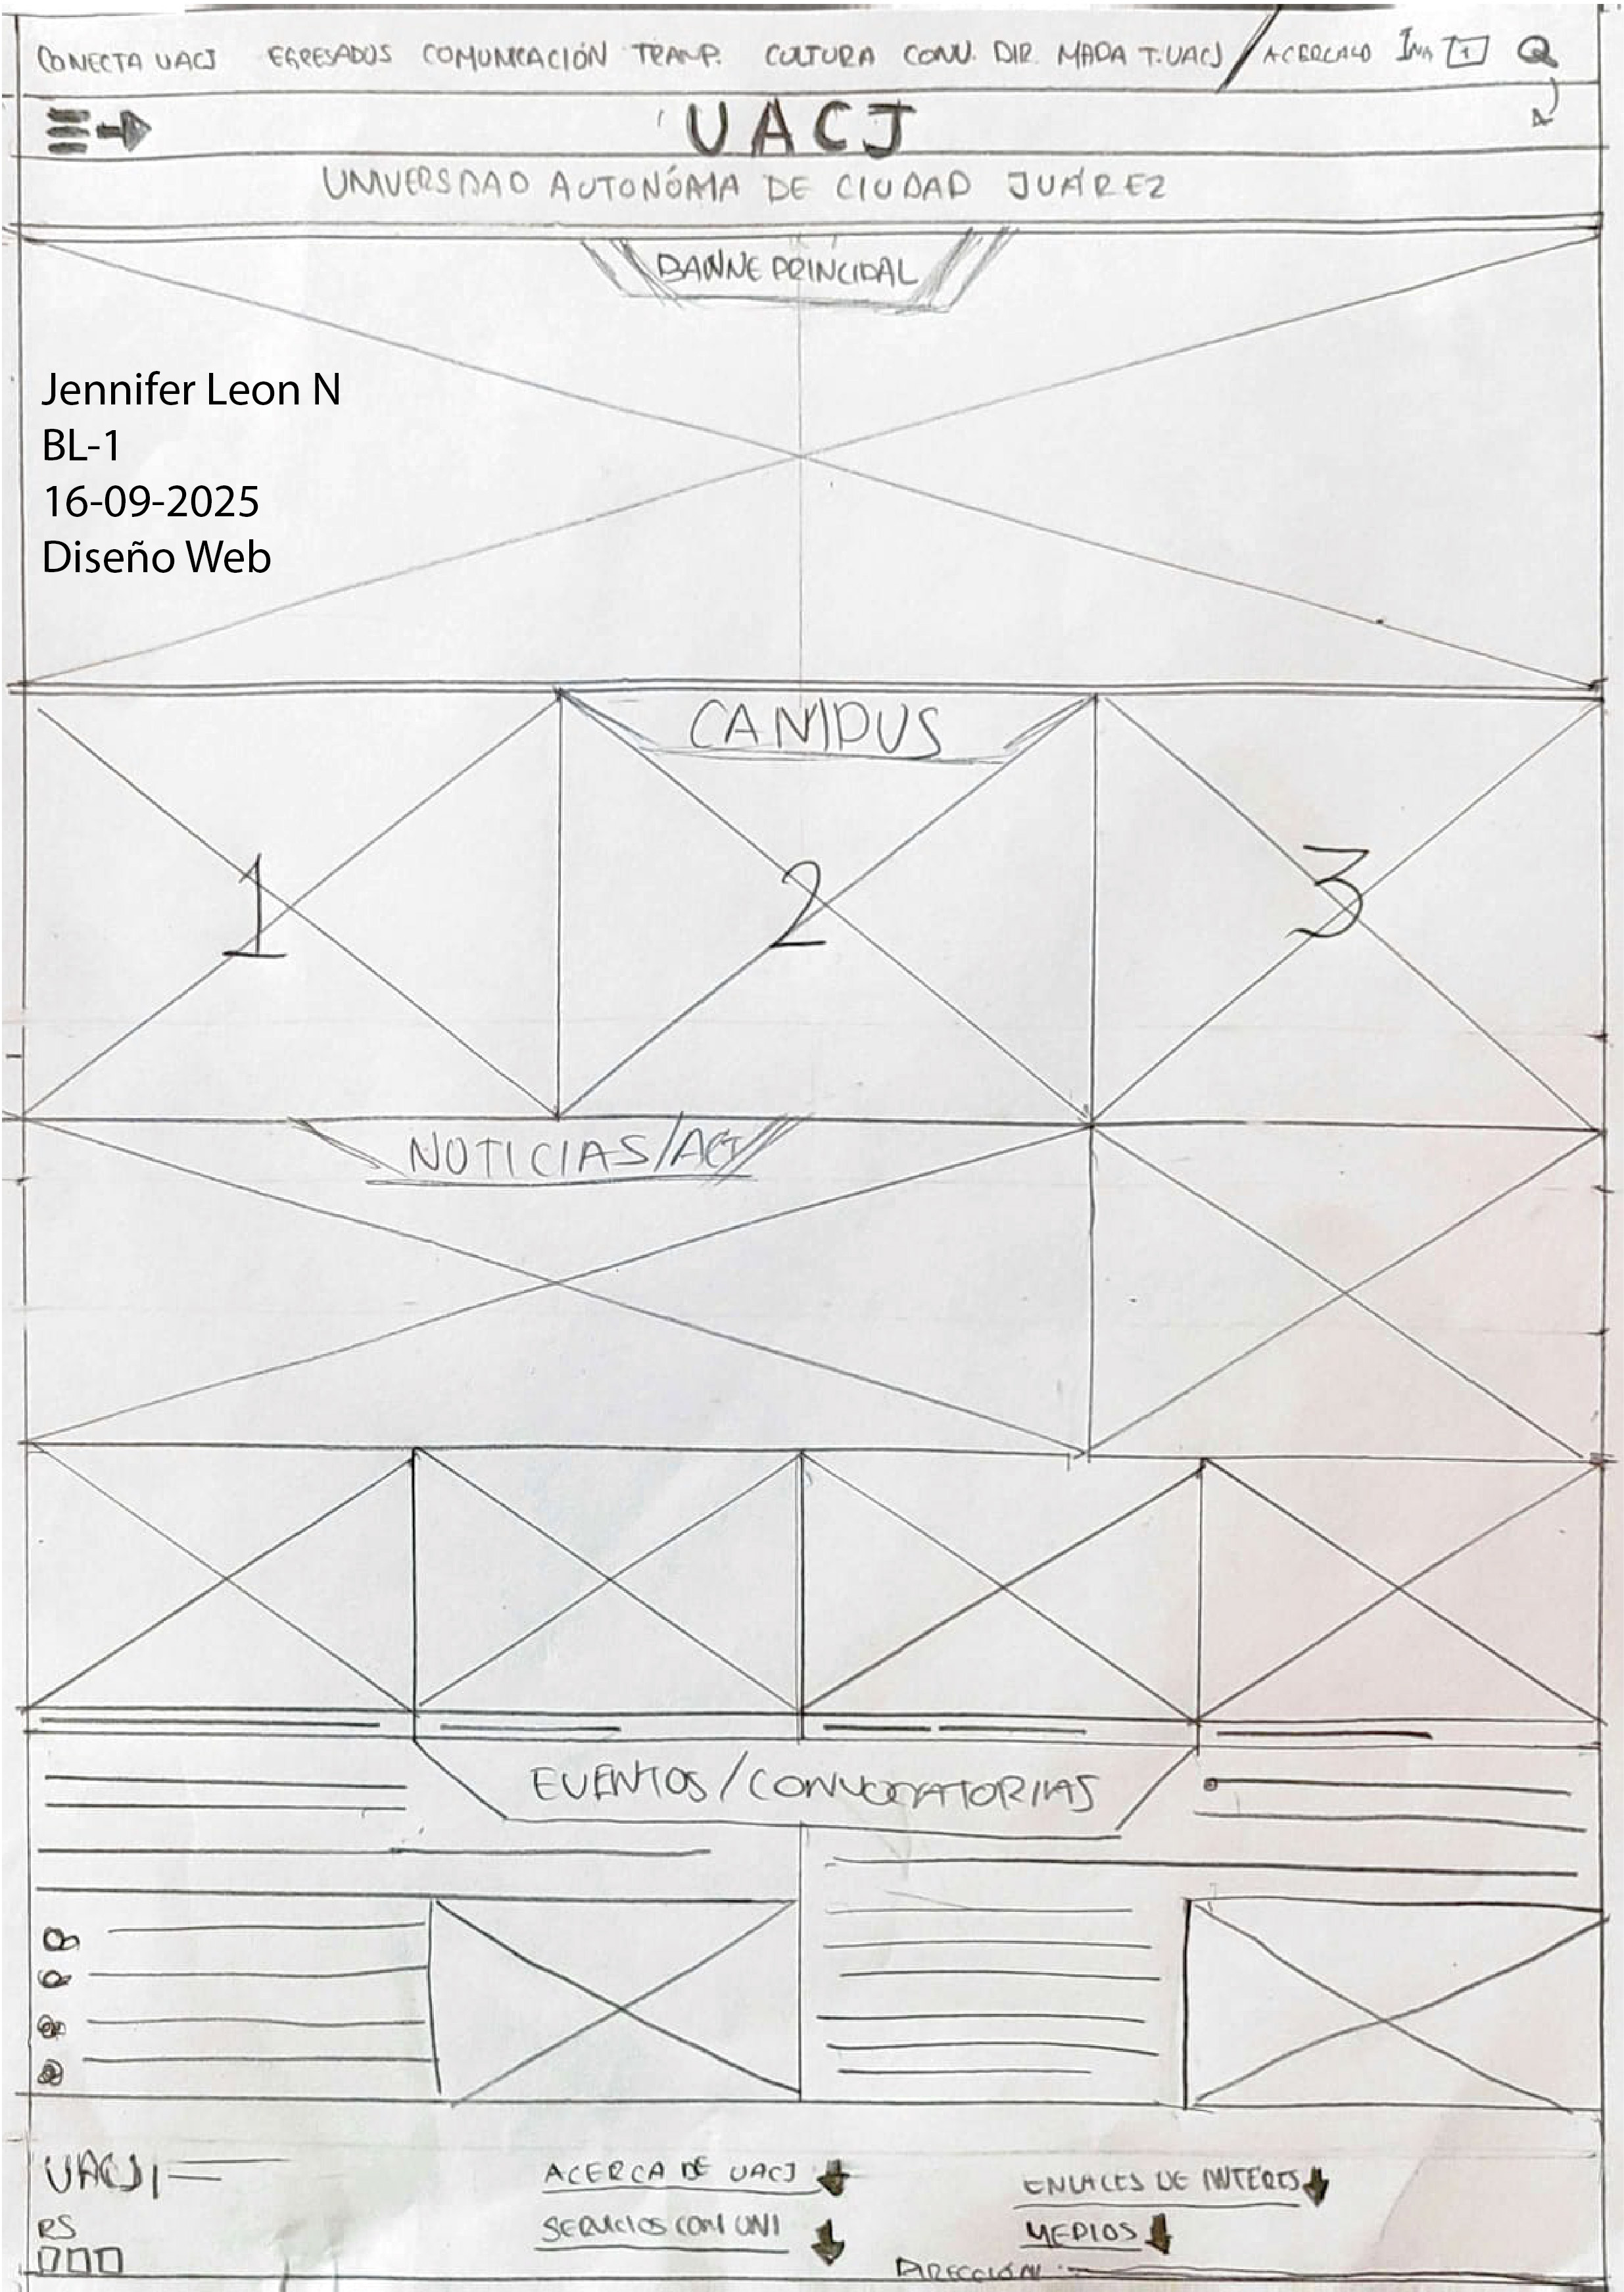 CONECTA UACJ EGRESADOS COMUNICACIÓN TRANP. CULTURA CONV. DIR. MAPA T.UACJ / ACERCALO
UACJ
UNIVERSIDAD AUTONÓMA DE CIUDAD JUÁREZ
BANNE PRINCIPAL
Jennifer Leon N
BL-1
16-09-2025
Diseño Web
CAMPUS
1 2 3
NOTICIAS/ACT
EVENTOS/CONVOCATORIAS
UACJ
ACERCA DE UACJ
ENLACES DE INTERES
RS
SERVICIOS COM UNI
MEDIOS
DIRECCIÓN